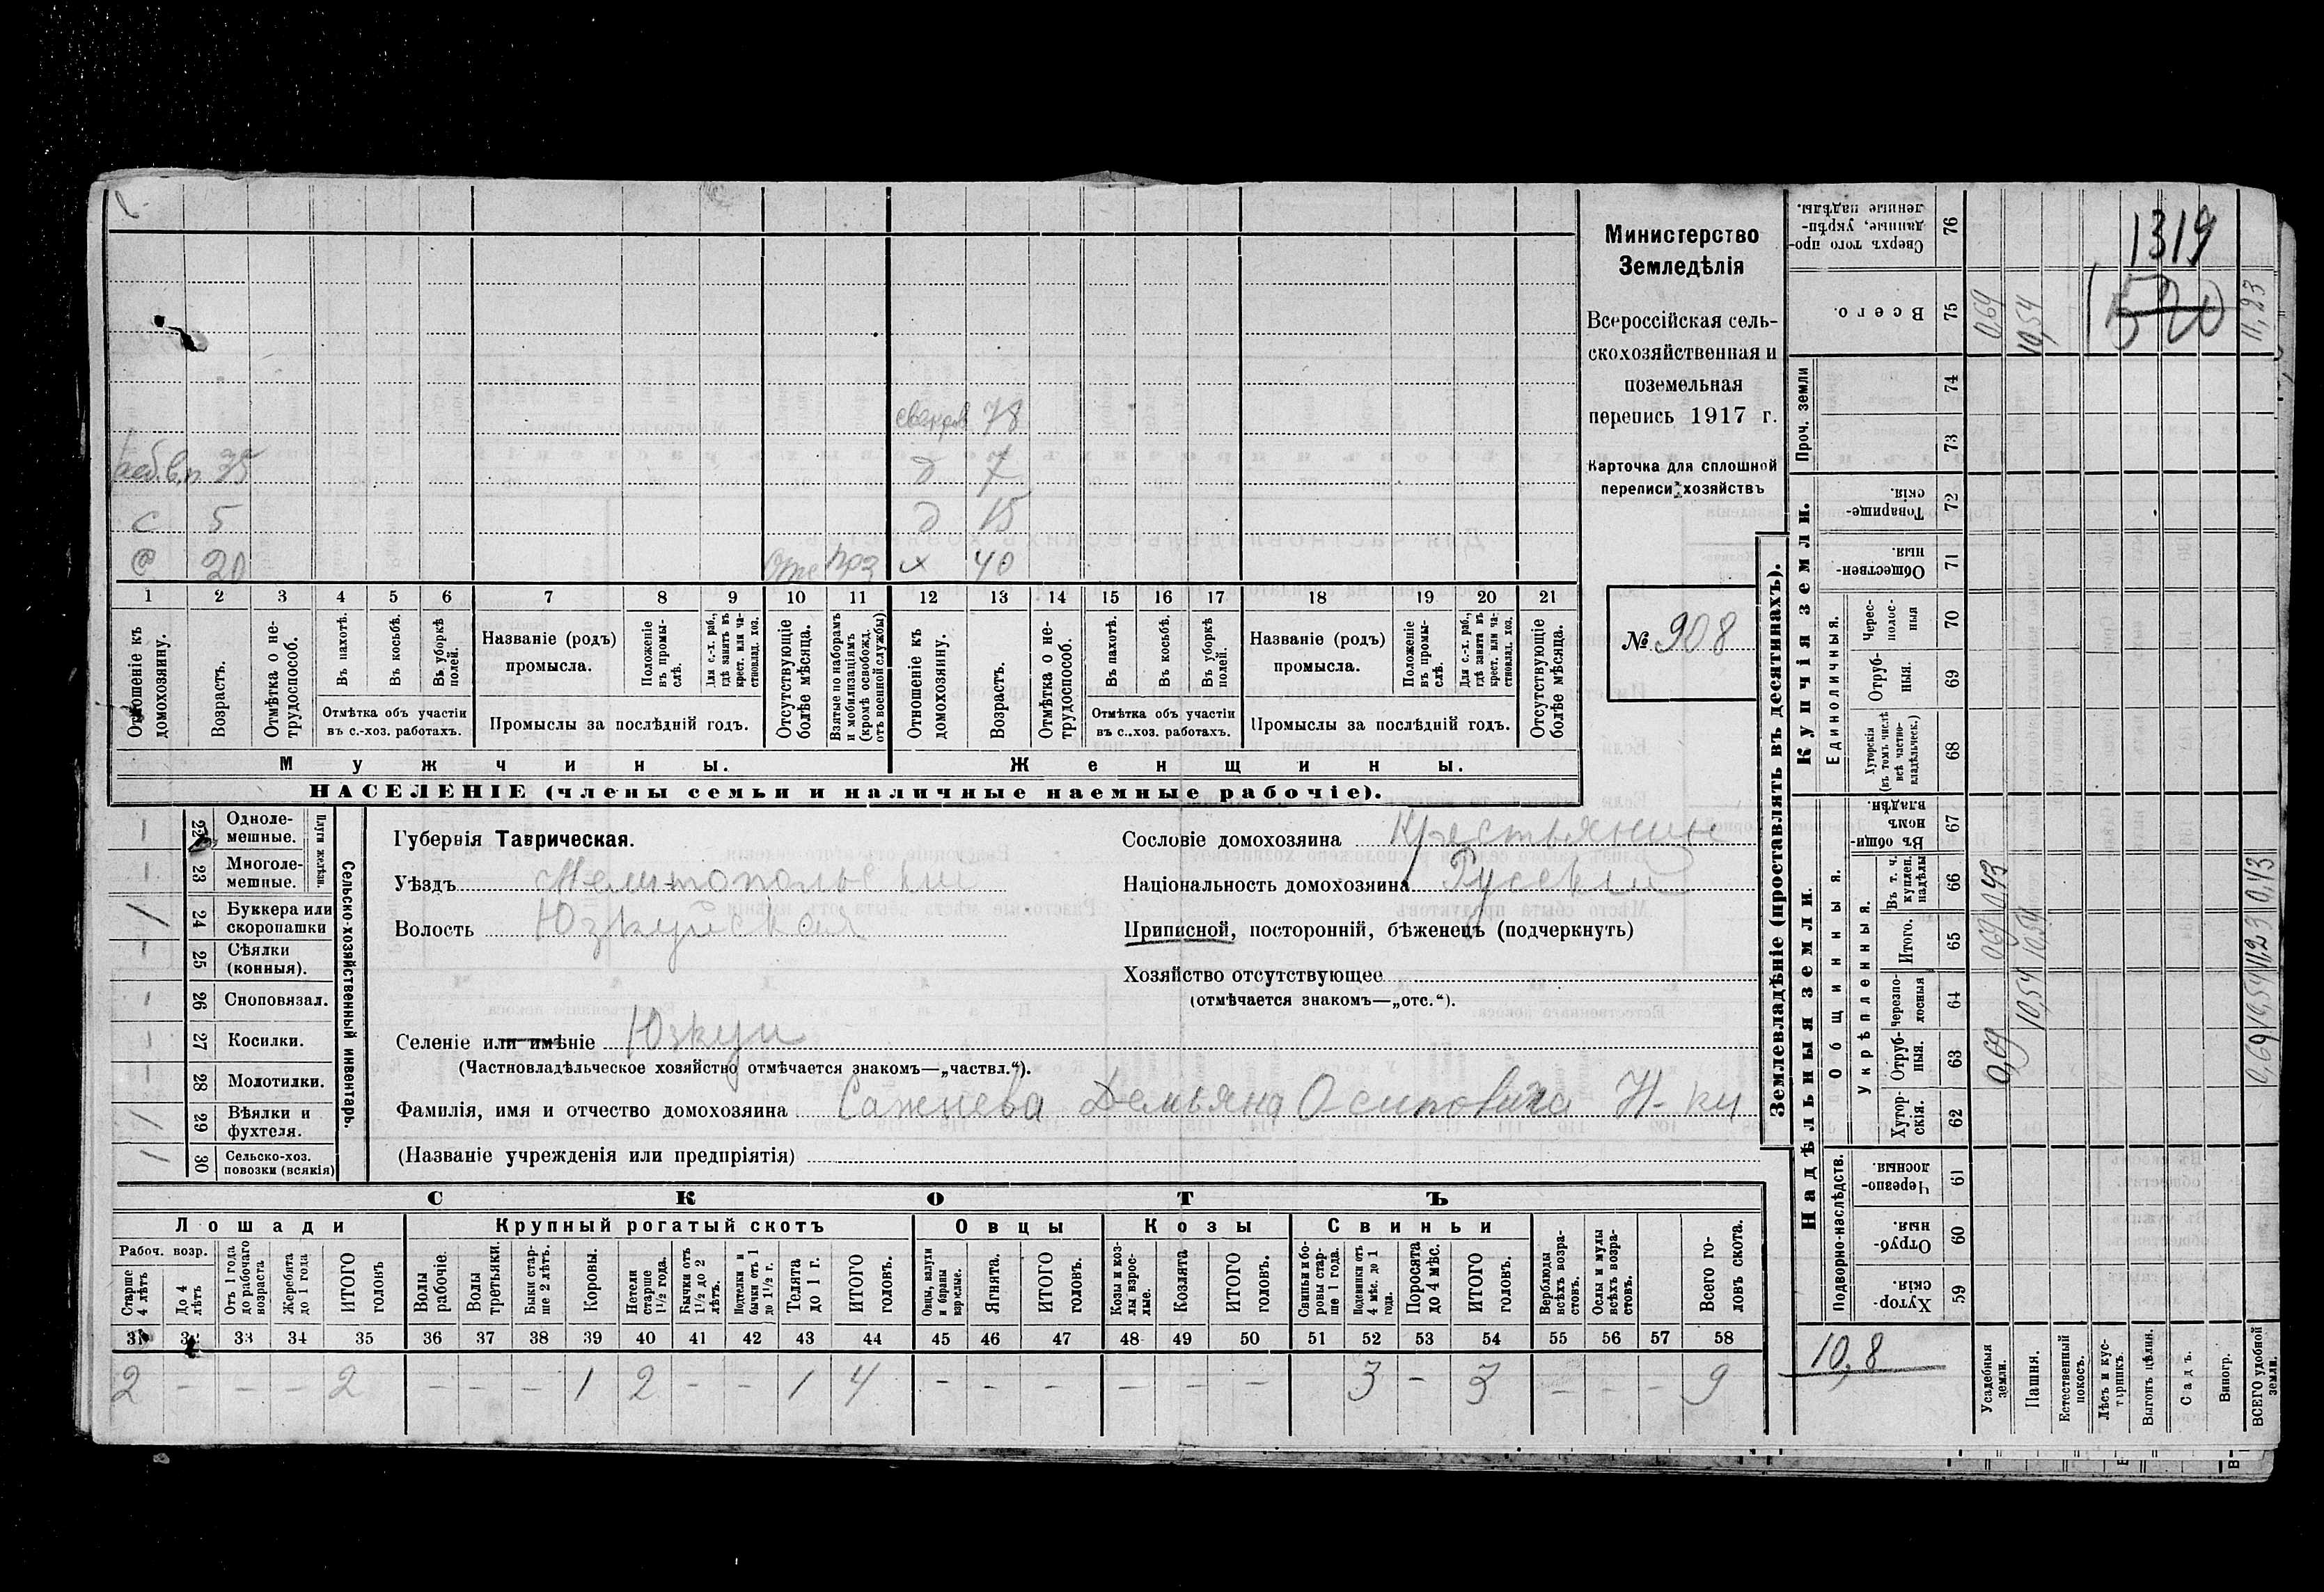 1319
520
свекров 78
раб. в.п 35 д 7
с 5 д 15
с 20 Отс Прз х 40
1 2 3 4 5 6 7 8 9 10 11 12 13 14 15 16 17 18 19 20 21
Отношеніе къ домохозяину.
Возрастъ.
Отмѣтка о нетрудоспособ.
Въ пахотѣ.
Въ косьбѣ.
Въ уборкѣ полей.
Отмѣтка объ участіи въ с.-хоз. работахъ.
Названіе (родъ) промысла.
Положеніе въ промыслѣ.
Для с.-х. раб., гдѣ занятъ въ крест. или частновлад. хоз.
Промыслы за послѣдній годъ.
Отсутствующіе болѣе мѣсяца.
Взятые по наборамъ и мобилизаціямъ (кромѣ освобожд. отъ военной службы)
Отношеніе къ домохозяину.
Возрастъ.
Отмѣтка о нетрудоспособ.
Въ пахотѣ.
Въ косьбѣ.
Въ уборкѣ полей.
Отмѣтка объ участіи въ с.-хоз. работахъ.
Названіе (родъ) промысла.
Положеніе въ промыслѣ.
Для с.-х. раб., гдѣ занята въ крест. или частновлад. хоз.
Промыслы за послѣдній годъ.
Отсутствующіе болѣе мѣсяца.
Мужчины. Женщины.
НАСЕЛЕНІЕ (члены семьи и наличные наемные рабочіе).
Министерство
Земледѣлія
Всероссійская сель-
скохозяйственная и
поземельная
перепись 1917 г.
Карточка для сплошной
переписи хозяйствъ
№ 908
Сельско-хозяйственный инвентарь.
Плуги желѣзн.
1 22 Одноле-мешные.
1 23 Многоле-мешные.
1 24 Буккера или скоропашки
1 25 Сѣялки (конныя).
1 26 Сноповязал.
1 27 Косилки.
1 28 Молотилки.
1 29 Вѣялки и фухтеля.
1 30 Сельско-хоз. повозки (всякія)
Губернія Таврическая.
Уѣздъ Мелитопольскій
Волость Юзкуйская
Селеніе или имѣніе Юзкуи
(Частновладѣльческое хозяйство отмѣчается знакомъ—„частвл.“).
Фамилія, имя и отчество домохозяина Сажнева Демьяна Осиповича Н-ки
(Названіе учрежденія или предпріятія)
Сословіе домохозяина Крестьянин
Національность домохозяина Русскій
Приписной, посторонній, бѣженецъ (подчеркнуть)
Хозяйство отсутствующее
(отмѣчается знакомъ—„отс.“).
СКОТЪ
Лошади Крупный рогатый скотъ Овцы Козы Свиньи
Рабоч. возр.
Старше 4 лѣтъ
До 4 лѣтъ
Отъ 1 года до рабочаго возраста
Жеребята до 1 года
ИТОГО головъ
Волы рабочіе.
Волы третьяки.
Быки старше 2 лѣтъ.
Коровы.
Нетели старше 1½ года.
Бычки отъ 1½ до 2 лѣтъ.
Подтелки и бычки отъ 1 до 1½ г.
Телята до 1 г.
ИТОГО головъ.
Овцы, валухи и бараны взрослые.
Ягнята.
ИТОГО головъ.
Козы и козлы взрослые.
Козлята
ИТОГО головъ.
Свиньи и боровы старше 1 года.
Подсвинки отъ 4 мѣс. до 1 года.
Поросята до 4 мѣс.
ИТОГО головъ.
Верблюды всѣхъ возрастовъ.
Ослы и мулы всѣхъ возрастовъ.
Всего головъ скота.
31 32 33 34 35 36 37 38 39 40 41 42 43 44 45 46 47 48 49 50 51 52 53 54 55 56 57 58
2 - - - 2 - - - 1 2 - - 1 4 - - - - - - 3 - 3 - - - 9
Землевладѣніе (проставлять въ десятинахъ).
Купчія земли.
Надѣльныя земли.
Сверхъ того проданные, укрѣпленные надѣлы. 76
Всего. 75 0,69 10,54 11,23
Проч. земли 74 73
Товарищескія. 72
Общественныя 71
Единоличныя.
Чересполосныя 70
Отрубныя. 69
Хуторскія (въ томъ числѣ всѣ частновладѣльческ.) 68
Общинныя.
Въ общинномъ владѣн. 67
Укрѣпленныя.
Въ т. ч. куплен. надѣлы 66 0,43 0,43
Итого. 65 0,69 10,54 11,23
Черезполосныя 64 10,54 10,54
Отрубныя. 63 0,69 0,69
Хуторскія. 62
Подворно-наслѣдств.
Черезполосныя. 61
Отрубныя. 60
Хуторскія. 59
10,8
Усадебныя земли.
Пашня.
Естественный покосъ.
Лѣсъ и кустарникъ.
Выгонъ цѣлин.
Садъ.
Виногр.
ВСЕГО удобной земли.